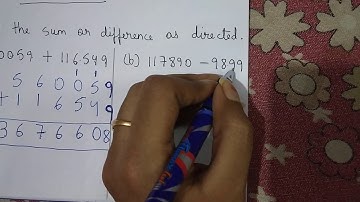 the sum or difference as directed.
0059 + 116549
(b) 117890 - 9899
5 6 0 0 5 9
+ 1 1 6 5 4 9
3 6 7 6 6 0 8